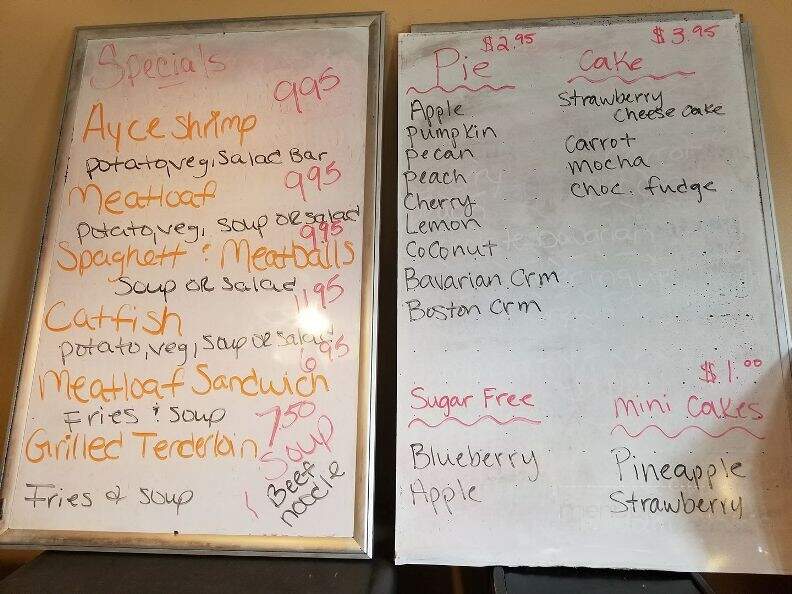 Specials
9.95
Ayce shrimp
potato, veg, Salad Bar
9.95
Meatloaf
potato, veg, soup or salad
9.95
Spaghetti & Meatballs
Soup or salad
11.95
Catfish
potato, veg, soup or salad
6.95
Meatloaf Sandwich
Fries & soup
7.50
Grilled Tenderloin
Fries & soup
Soup
Beef
noodle
$2.95
Pie
Apple
pumpkin
pecan
peach
Cherry
Lemon
Coconut
Bavarian Crm
Boston Crm
$3.95
Cake
Strawberry
Cheese cake
Carrot
mocha
choc. fudge
Sugar Free
Blueberry
Apple
$1.00
Mini Cakes
Pineapple
Strawberry